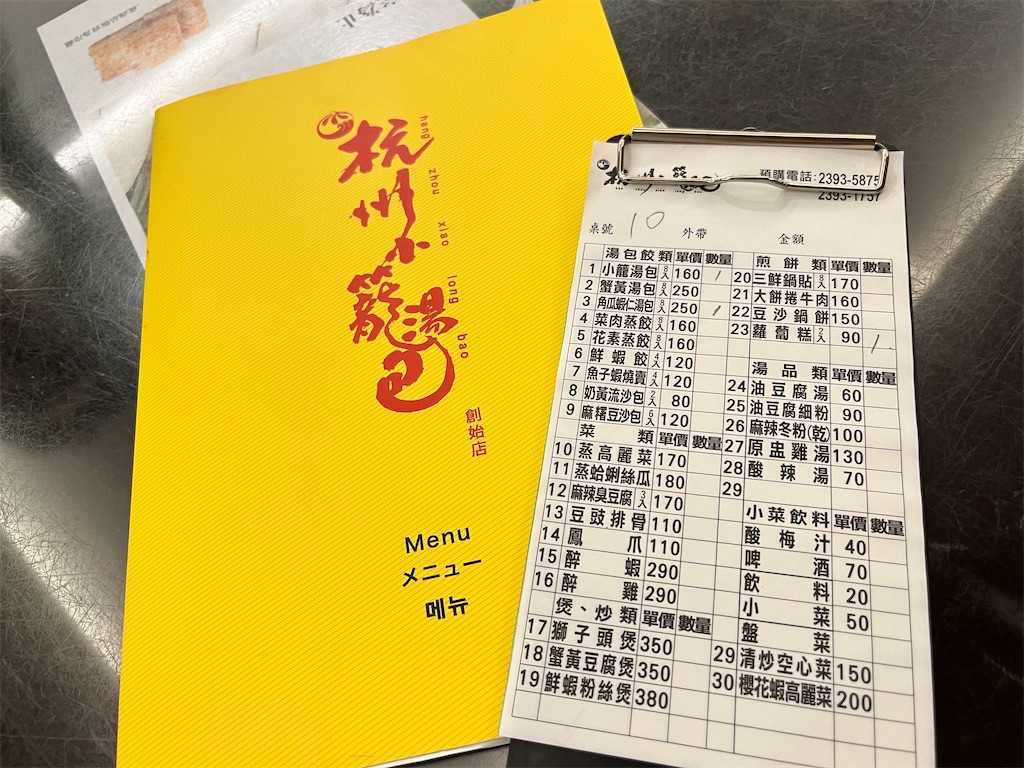 杭州小籠湯包
hang zhou xiao long bao
創始店
Menu
メニュー
메뉴
預購電話:2393-5875
2393-1757
桌號 10 外帶 金額
湯包餃類 單價 數量
1 小籠湯包 8入 160 /
2 蟹黃湯包 8入 250
3 角瓜蝦仁湯包 8入 250 /
4 菜肉蒸餃 8入 160
5 花素蒸餃 8入 160
6 鮮蝦餃 4入 120
7 魚子蝦燒賣 4入 120
8 奶黃流沙包 2入 80
9 麻糬豆沙包 6入 120
菜類 單價 數量
10 蒸高麗菜 170
11 蒸蛤蜊絲瓜 180
12 麻辣臭豆腐 3入 170
13 豆豉排骨 110
14 鳳爪 110
15 醉蝦 290
16 醉雞 290
煲、炒類 單價 數量
17 獅子頭煲 350
18 蟹黃豆腐煲 350
19 鮮蝦粉絲煲 380
煎餅類 單價 數量
20 三鮮鍋貼 8入 170
21 大餅捲牛肉 160
22 豆沙鍋餅 150
23 蘿蔔糕 2入 90 /
湯品類 單價 數量
24 油豆腐湯 60
25 油豆腐細粉 90
26 麻辣冬粉(乾) 100
27 原盅雞湯 130
28 酸辣湯 70
29
小菜飲料 單價 數量
酸梅汁 40
啤酒 70
飲料 20
小菜 50
盤菜
29 清炒空心菜 150
30 櫻花蝦高麗菜 200